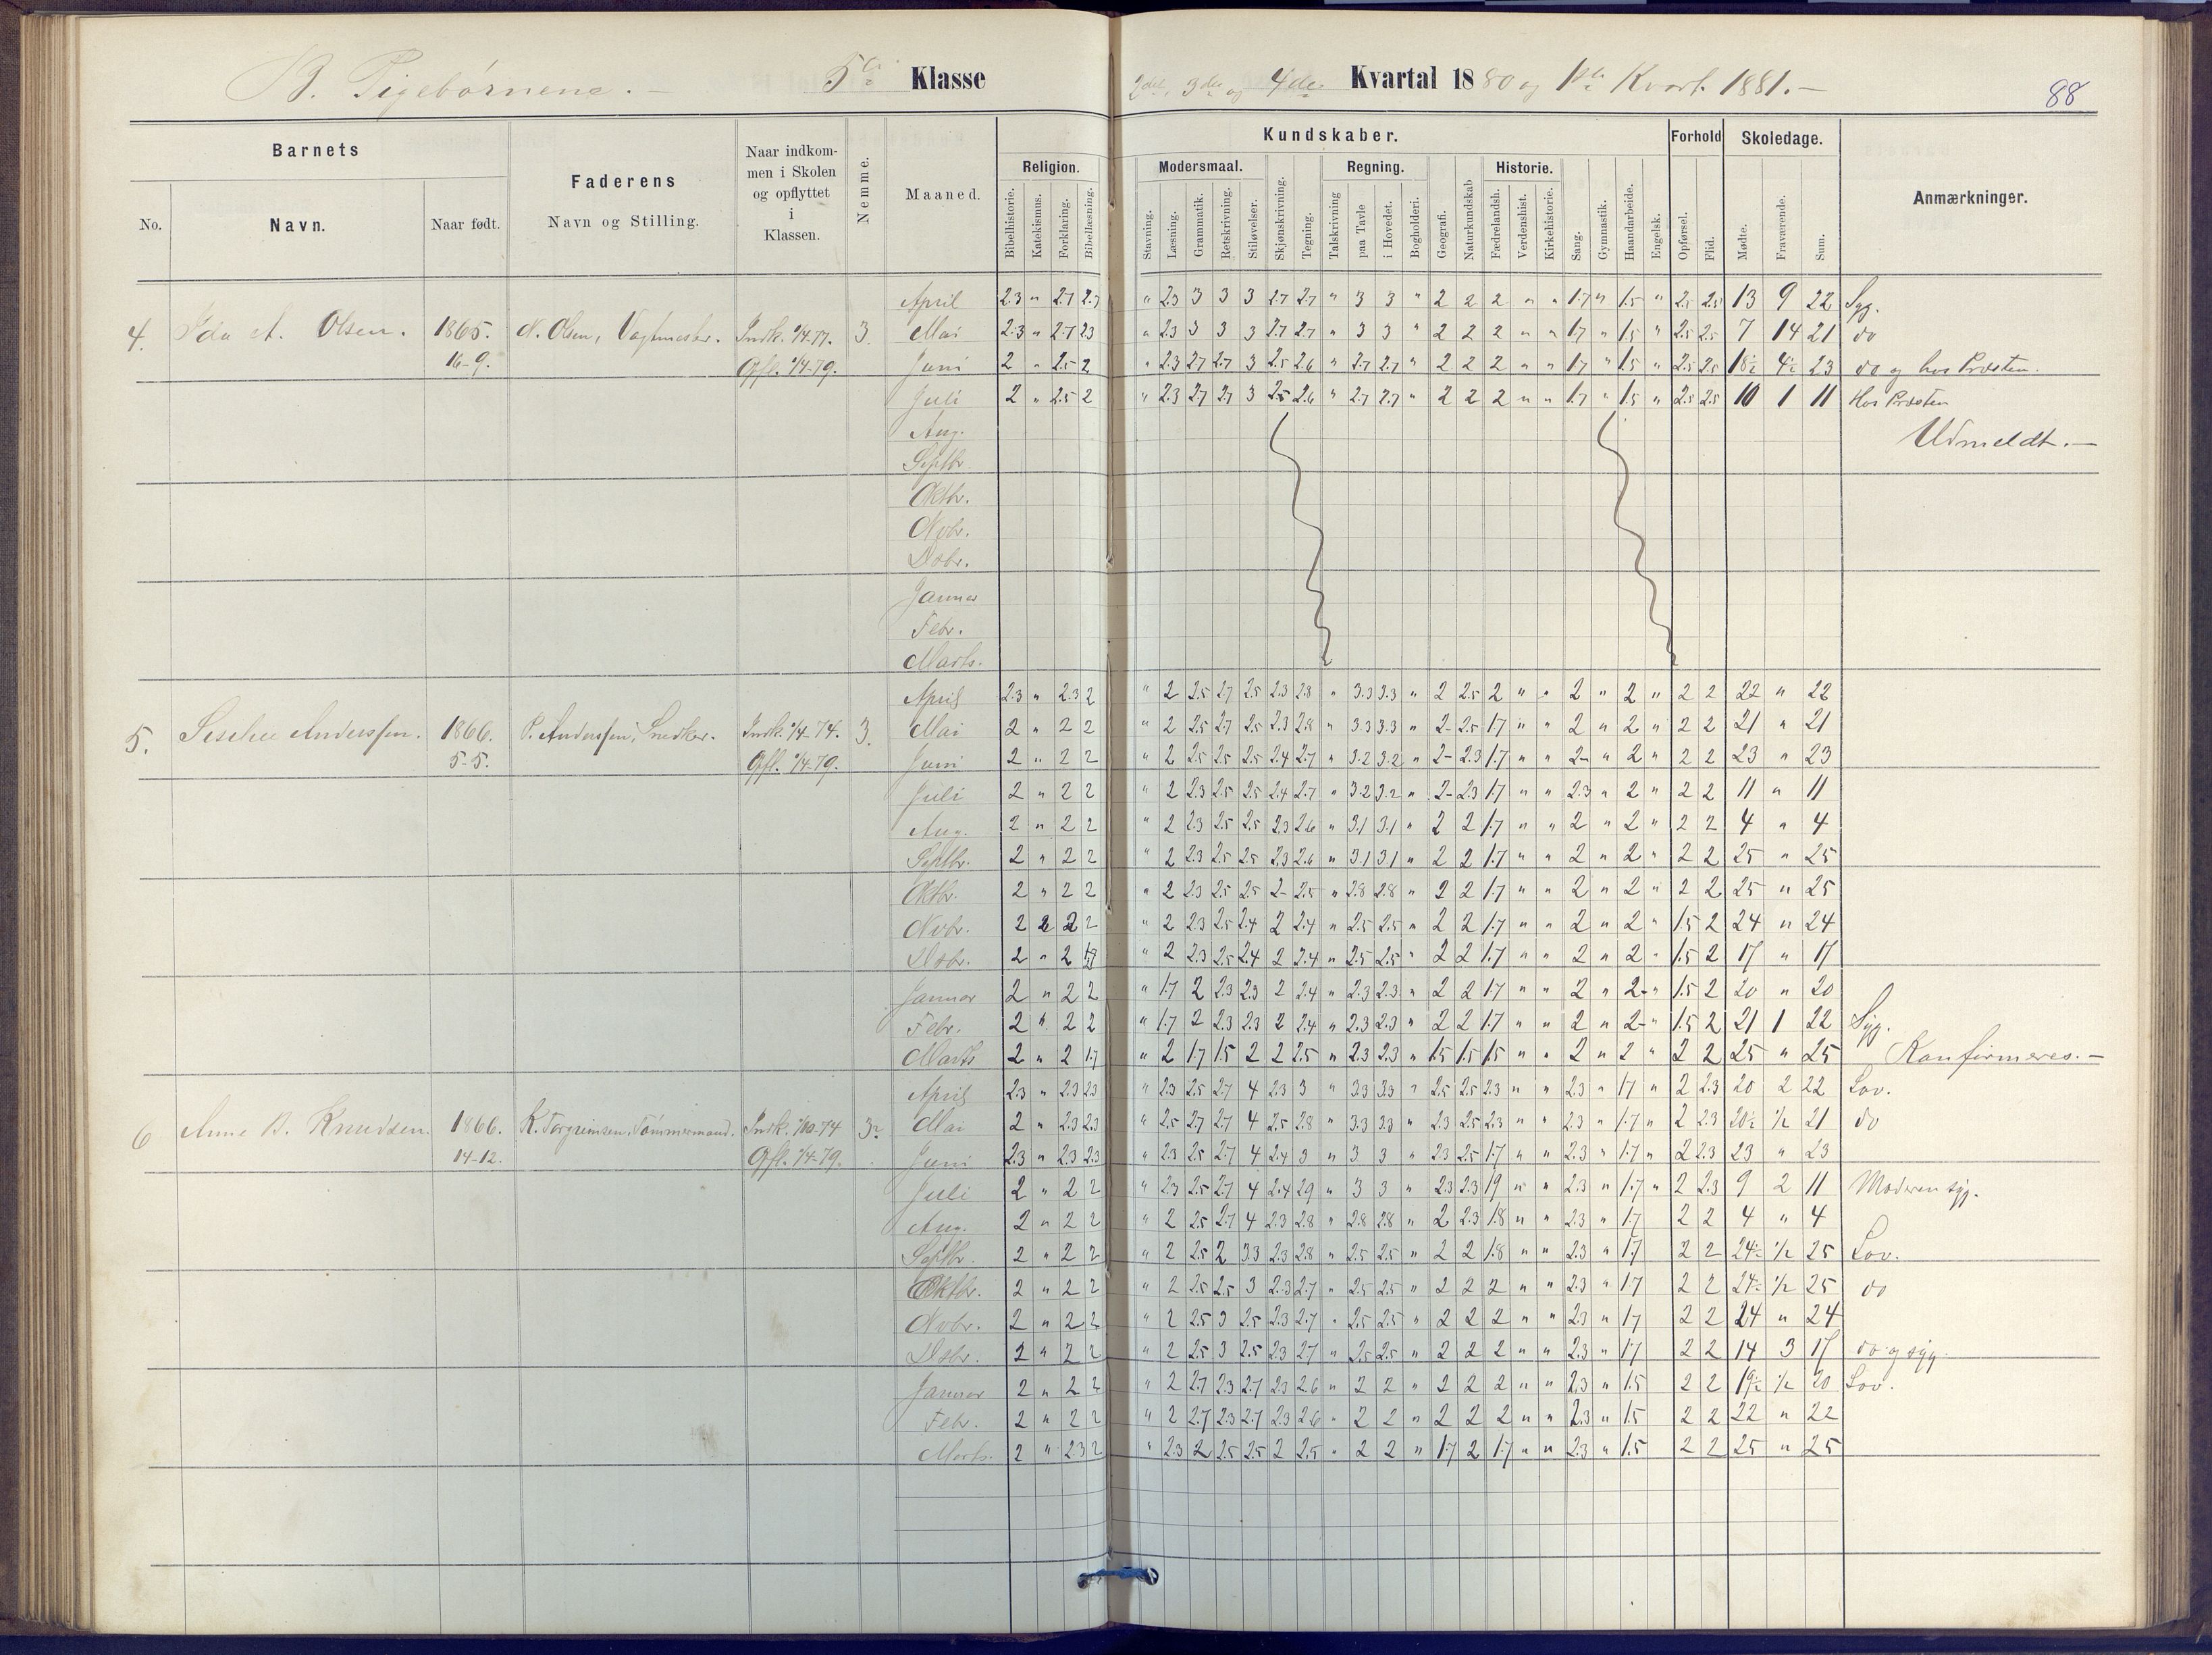 B. Pigebørnene. — 5te Klasse 2det, 3die og 4de Kvartal 1880 og 1ste Kvart. 1881. —
88
Barnets
No.
Navn.
Naar født.
Faderens
Navn og Stilling.
Naar indkom-
men i Skolen
og opflyttet
i
Klassen.
Nemme.
Maaned.
Kundskaber.
Religion.
Bibelhistorie.
Katekismus.
Forklaring.
Bibellæsning.
Modersmaal.
Stavning.
Læsning.
Grammatik.
Retskrivning.
Stiløvelser.
Skjønskrivning.
Tegning.
Regning.
Talskrivning
paa Tavle
i Hovedet.
Bogholderi.
Geografi.
Naturkundskab
Historie.
Fædrelandsh.
Verdenshist.
Kirkehistorie.
Sang.
Gymnastik.
Haandarbeide.
Engelsk.
Forhold
Opførsel.
Flid.
Skoledage.
Mødte.
Fraværende.
Sum.
Anmærkninger.
April 2.3 " 2.7 2.7 " 2.3 3 3 3 2.7 2.7 " 3 3 " 2 2 2 " " 1.7 " 1.5 " 2.5 2.5 13 9 22 Syg.
4. Ida A. Olsen. 1865. N. Olsen, Vagtmester. Indk. 1/4-77. 3. Mai 2.3 " 2.7 2.3 " 2.3 3 3 3 2.7 2.7 " 3 3 " 2 2 2 " " 1.7 " 1.5 " 2.5 2.5 7 14 21 do
16-9. Opfl. 1/4-79. Juni 2 " 2.5 2 " 2.3 2.7 2.7 3 2.5 2.6 " 2.7 2.7 " 2 2 2 " " 1.7 " 1.5 " 2.5 2.5 18½ 4½ 23 do og hos Præsten.
Juli 2 " 2.5 2 " 2.3 2.7 2.7 3 2.5 2.6 " 2.7 2.7 " 2 2 2 " " 1.7 " 1.5 " 2.5 2.5 10 1 11 Hos Præsten
Aug. Udmeldt. —
Septbr.
Oktbr.
Nvbr.
Dsbr.
Januar
Febr.
Marts.
April 2.3 " 2.3 2 " 2 2.5 2.7 2.5 2.3 2.8 " 3.3 3.3 " 2 2.5 2 " " 2 " 2 " 2 2 22 " 22
5. Anderssen. 1866. P. Anderssen, Snedker. Indk. 1/4-74. 3. Mai 2 " 2 2 " 2 2.5 2.7 2.5 2.3 2.8 " 3.3 3.3 " 2- 2.5 1.7 " " 2 " 2 " 2 2 21 " 21
5-5. Opfl. 1/4-79. Juni 2 " 2 2 " 2 2.5 2.5 2.5 2.4 2.7 " 3.2 3.2 " 2- 2.3 1.7 " " 2- " 2 " 2 2 23 " 23
Juli 2 " 2 2 " 2 2.3 2.5 2.5 2.4 2.7 " 3.2 3.2 " 2- 2.3 1.7 " " 2.3 " 2 " 2 2 11 " 11
Aug. 2 " 2 2 " 2 2.3 2.5 2.5 2.3 2.6 " 3.1 3.1 " 2 2 1.7 " " 2 " 2 " 2 2 4 " 4
Septbr. 2 " 2 2 " 2 2.3 2.5 2.5 2.3 2.6 " 3.1 3.1 " 2 2 1.7 " " 2 " 2 " 2 2 25 " 25
Oktbr. 2 " 2 2 " 2 2.3 2.5 2.5 2- 2.5 " 2.8 2.8 " 2 2 1.7 " " 2 " 2 " 2 2 25 " 25
Nvbr. 2 2 2 2 " 2 2.3 2.5 2.4 2 2.4 " 2.5 2.5 " 2 2 1.7 " " 2 " 2 " 1.5 2 24 " 24
Dsbr. 2 " 2 1.7 " 2 2.3 2.5 2.4 2 2.4 " 2.5 2.5 " 2 2 1.7 " " 2 " 2 " 1.5 2 17 " 17
Januar 2 " 2 2 " 1.7 2 2.3 2.3 2 2.4 " 2.3 2.3 " 2 2 1.7 " " 2 " 2- " 1.5 2 20 " 20
Febr. 2 " 2 2 " 1.7 2 2.3 2.3 2 2.4 " 2.3 2.3 " 2 2 1.7 " " 2 " 2- " 1.5 2 21 1 22 Syg.
Marts 2 " 2 1.7 " 2 1.7 1.5 2 2 2.5 " 2.3 2.3 " 1.5 1.5 1.5 " " 2 " 2 " 2 2 25 " 25 Konfirmeres. —
April 2.3 " 2.3 2.3 " 2.3 2.5 2.7 4 2.3 3 " 3.3 3.3 " 2.5 2.5 2.3 " " 2.3 " 1.7 " 2 2.3 20 2 22 Lov.
6 Anne B. Knudsen. 1866. K. Torgrimsen, Tømmermand. Indk. 1/10-74 3½ Mai 2 " 2.3 2.3 " 2.5 2.7 2.7 4 2.5 2.8 " 3.3 3.3 " 2.3 2.5 2.3 " " 2.3 " 1.7 " 2 2.3 20½ ½ 21 do
14-12. Opfl. 1/4-79. Juni 2.3 " 2.3 2.3 " 2.3 2.5 2.7 4 2.4 3 " 3 3 " 2.3 2.5 1.7 " " 2.3 " 1.7 " 2 2.3 23 " 23
Juli 2 " 2 2 " 2.3 2.5 2.7 4 2.4 2.9 " 3 3 " 2.3 2.3 1.9 " " 2.3 " 1.7 " 2 2.3 9 2 11 Moderen syg.
Aug. 2 " 2 2 " 2 2.5 2.7 4 2.3 2.8 " 2.8 2.8 " 2 2.3 1.8 " " 2.3 " 1.7 2 2 4 " 4
Septbr. 2 " 2 2 " 2 2.5 2 3.3 2.3 2.8 " 2.5 2.5 " 2 2 1.8 " " 2.3 " 1.7 2 2 24½ ½ 25 Lov.
Oktbr. 2 " 2 2 " 2 2.5 2.5 3 2.3 2.7 " 2.5 2.5 " 2 2 2 " " 2.3 " 1.7 2 2 24½ ½ 25 do
Nvbr. 2 " 2 2 " 2 2.5 3 2.5 2.3 2.7 " 2.5 2.5 " 2 2 2 " " 2.3 " 1.7 2 2 24 " 24
Dsbr. 2 " 2 2 " 2 2.5 3 2.5 2.3 2.7 " 2.5 2.5 " 2 2 2 " " 2.3 " 1.7 2 2 14 3 17 do og syg.
Januar 2 " 2 2 " 2 2.7 2.3 2.7 2.3 2.6 " 2 2 " 2 2 2 " " 2.3 " 1.5 2 2 19½ ½ 20 Lov.
Febr. 2 " 2 2 " 2 2.7 2.3 2.7 2.3 2.6 " 2 2 " 2 2 2 " " 2.3 " 1.5 2 2 22 " 22
Marts. 2 " 2.3 2 " 2.3 2 2.5 2.5 2 2.5 " 2 2 " 1.7 2 1.7 " " 2.3 " 1.5 2 2 25 " 25